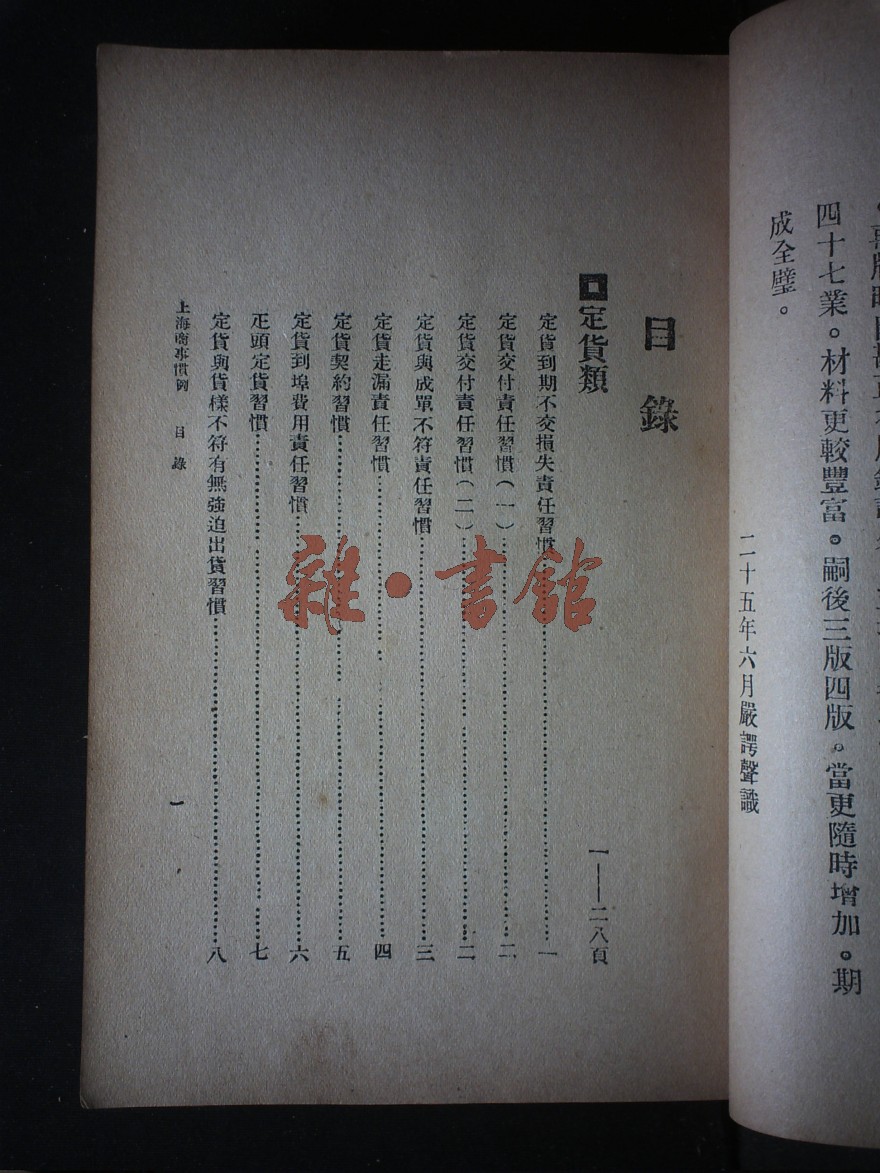 四十七業。材料更較豐富。嗣後三版四版。當更隨時增加。期
成全璧。
二十五年六月嚴諤聲識
目錄
定貨類 一——二八頁
定貨到期不交損失責任習慣 一
定貨交付責任習慣(一) 二
定貨交付責任習慣(二) 二
定貨與成單不符責任習慣 三
定貨走漏責任習慣 四
定貨契約習慣 五
定貨到埠費用責任習慣 六
疋頭定貨習慣 七
定貨與貨樣不符有無強迫出貨習慣 八
上海商事慣例 目錄 一
雜·書館